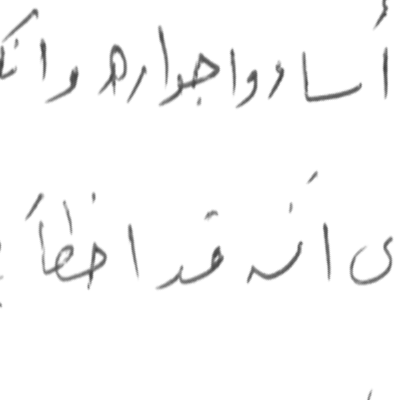 أساءوا جواره وانك
ى أنه قد اخطأ